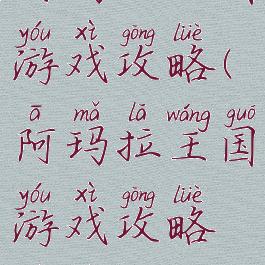 yóu xì gōng lüè
游戏攻略(
ā mǎ lā wáng guó
阿玛拉王国
yóu xì gōng lüè
游戏攻略